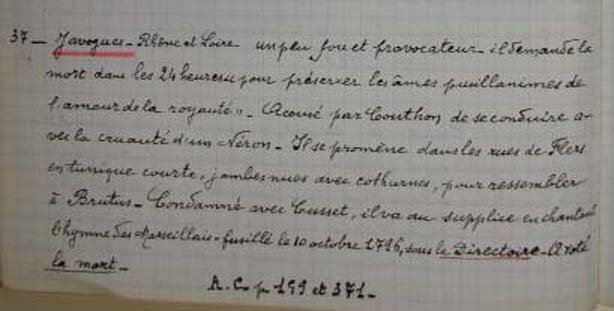 37 — Javogues - Rhône et Loire un peu fou et provocateur - il demande la
mort dans les 24 heures « pour préserver les âmes pusillanimes de
l'amour de la royauté » - Accusé par Couthon de se conduire a-
vec la cruauté d'un Néron - Il se promène dans les rues de Flers
en tunique courte, jambes nues avec cothurnes, pour ressembler
à Brutus - Condamné avec Cusset, il va au supplice en chantant
l'hymne des Marseillais - fusillé le 10 octobre 1796, sous le Directoire - A voté
la mort -
A. C. p 199 et 371 -